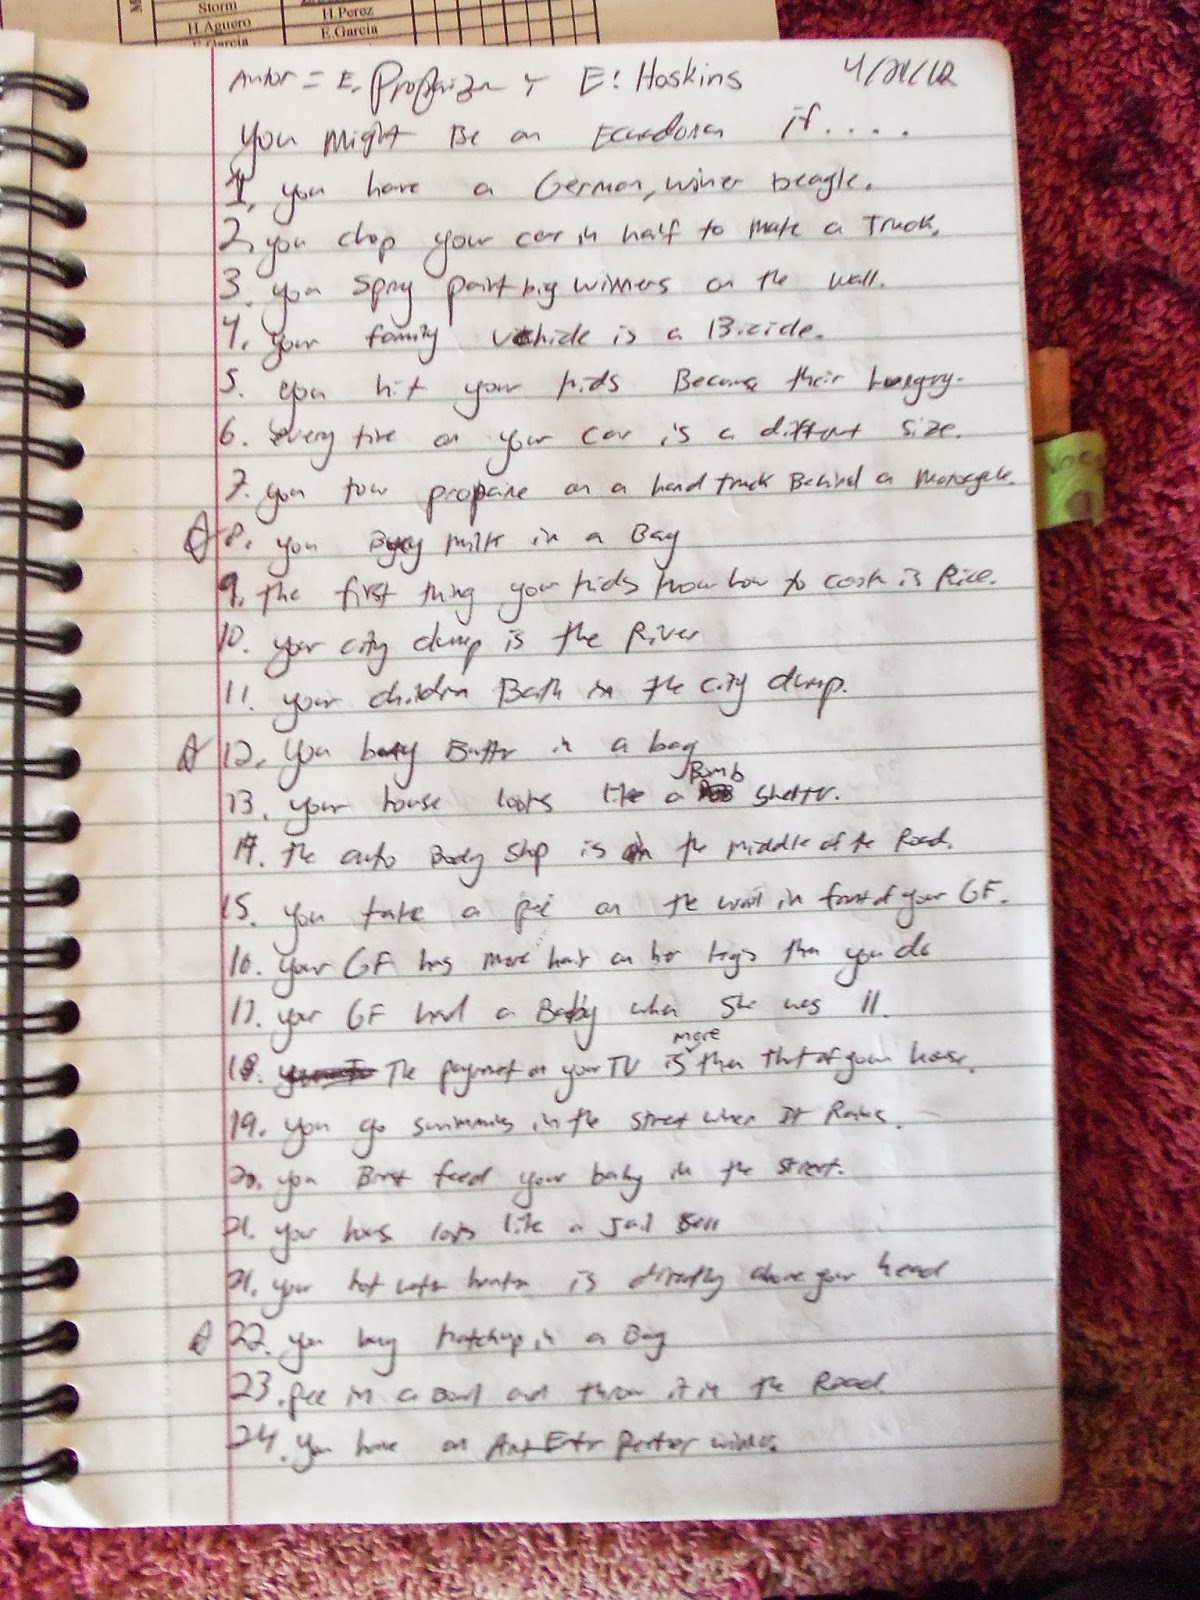 M
Storm
H.Aguero
E.Garcia
H.Perez
E.Garcia
Autor = E. Y E: Hoskins 4/21/12
you might Be an Ecuadorian if....
1. you have a German, winer beagle.
2. you chop your car in half to make a Truck.
3. you spray paint big winners on the wall.
4. your family vehicle is a Bizicle.
5. you hit your kids Because their hungry.
6. every tire on your car is a different size.
7. you tow propane on a hand truck Behind a Motorcycle.
8. you Buy milk in a Bag
9. the first thing your kids know how to cook is Rice.
10. your city dump is the River
11. your children Bath in the city dump.
12. you buy Butter in a bag
13. your house looks like a Bomb shelter.
14. the auto Body shop is in the middle of the Road.
15. you take a pee on the wall in front of your GF.
16. your GF has more hair on her legs than you do
17. your GF had a Baby when she was 11.
18. The payment on your TV is more than that of your house.
19. you go swimming in the street when It Rains.
20. you Brest feed your baby in the street.
21. your hous looks like a Jail Sell
21. your hot water heater is directly above your head
22. you buy Katchup in a Bag
23. pee in a Bowl and throw it in the Road
24. you have an Ant Eater